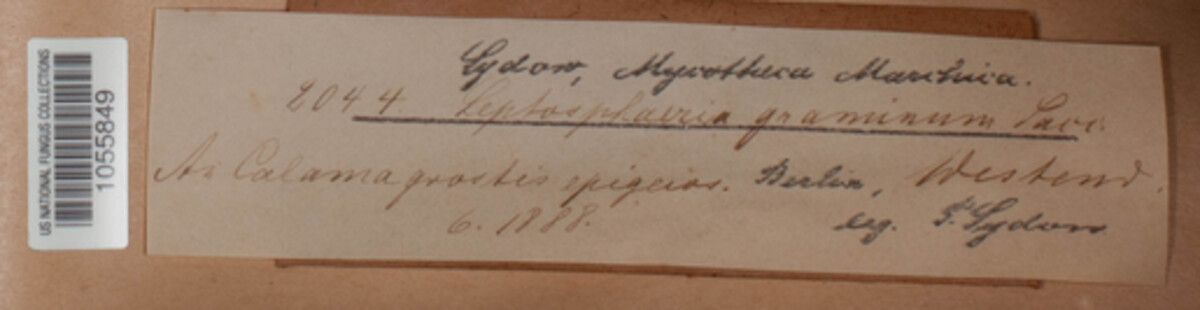 US NATIONAL FUNGUS COLLECTIONS
1055849
Sydow, Mycotheca Marchica.
2044 Leptosphaeria graminum Sacc.
An Calamagrostis epigeios. Berlin, Westend.
6. 1888. leg. P. Sydow